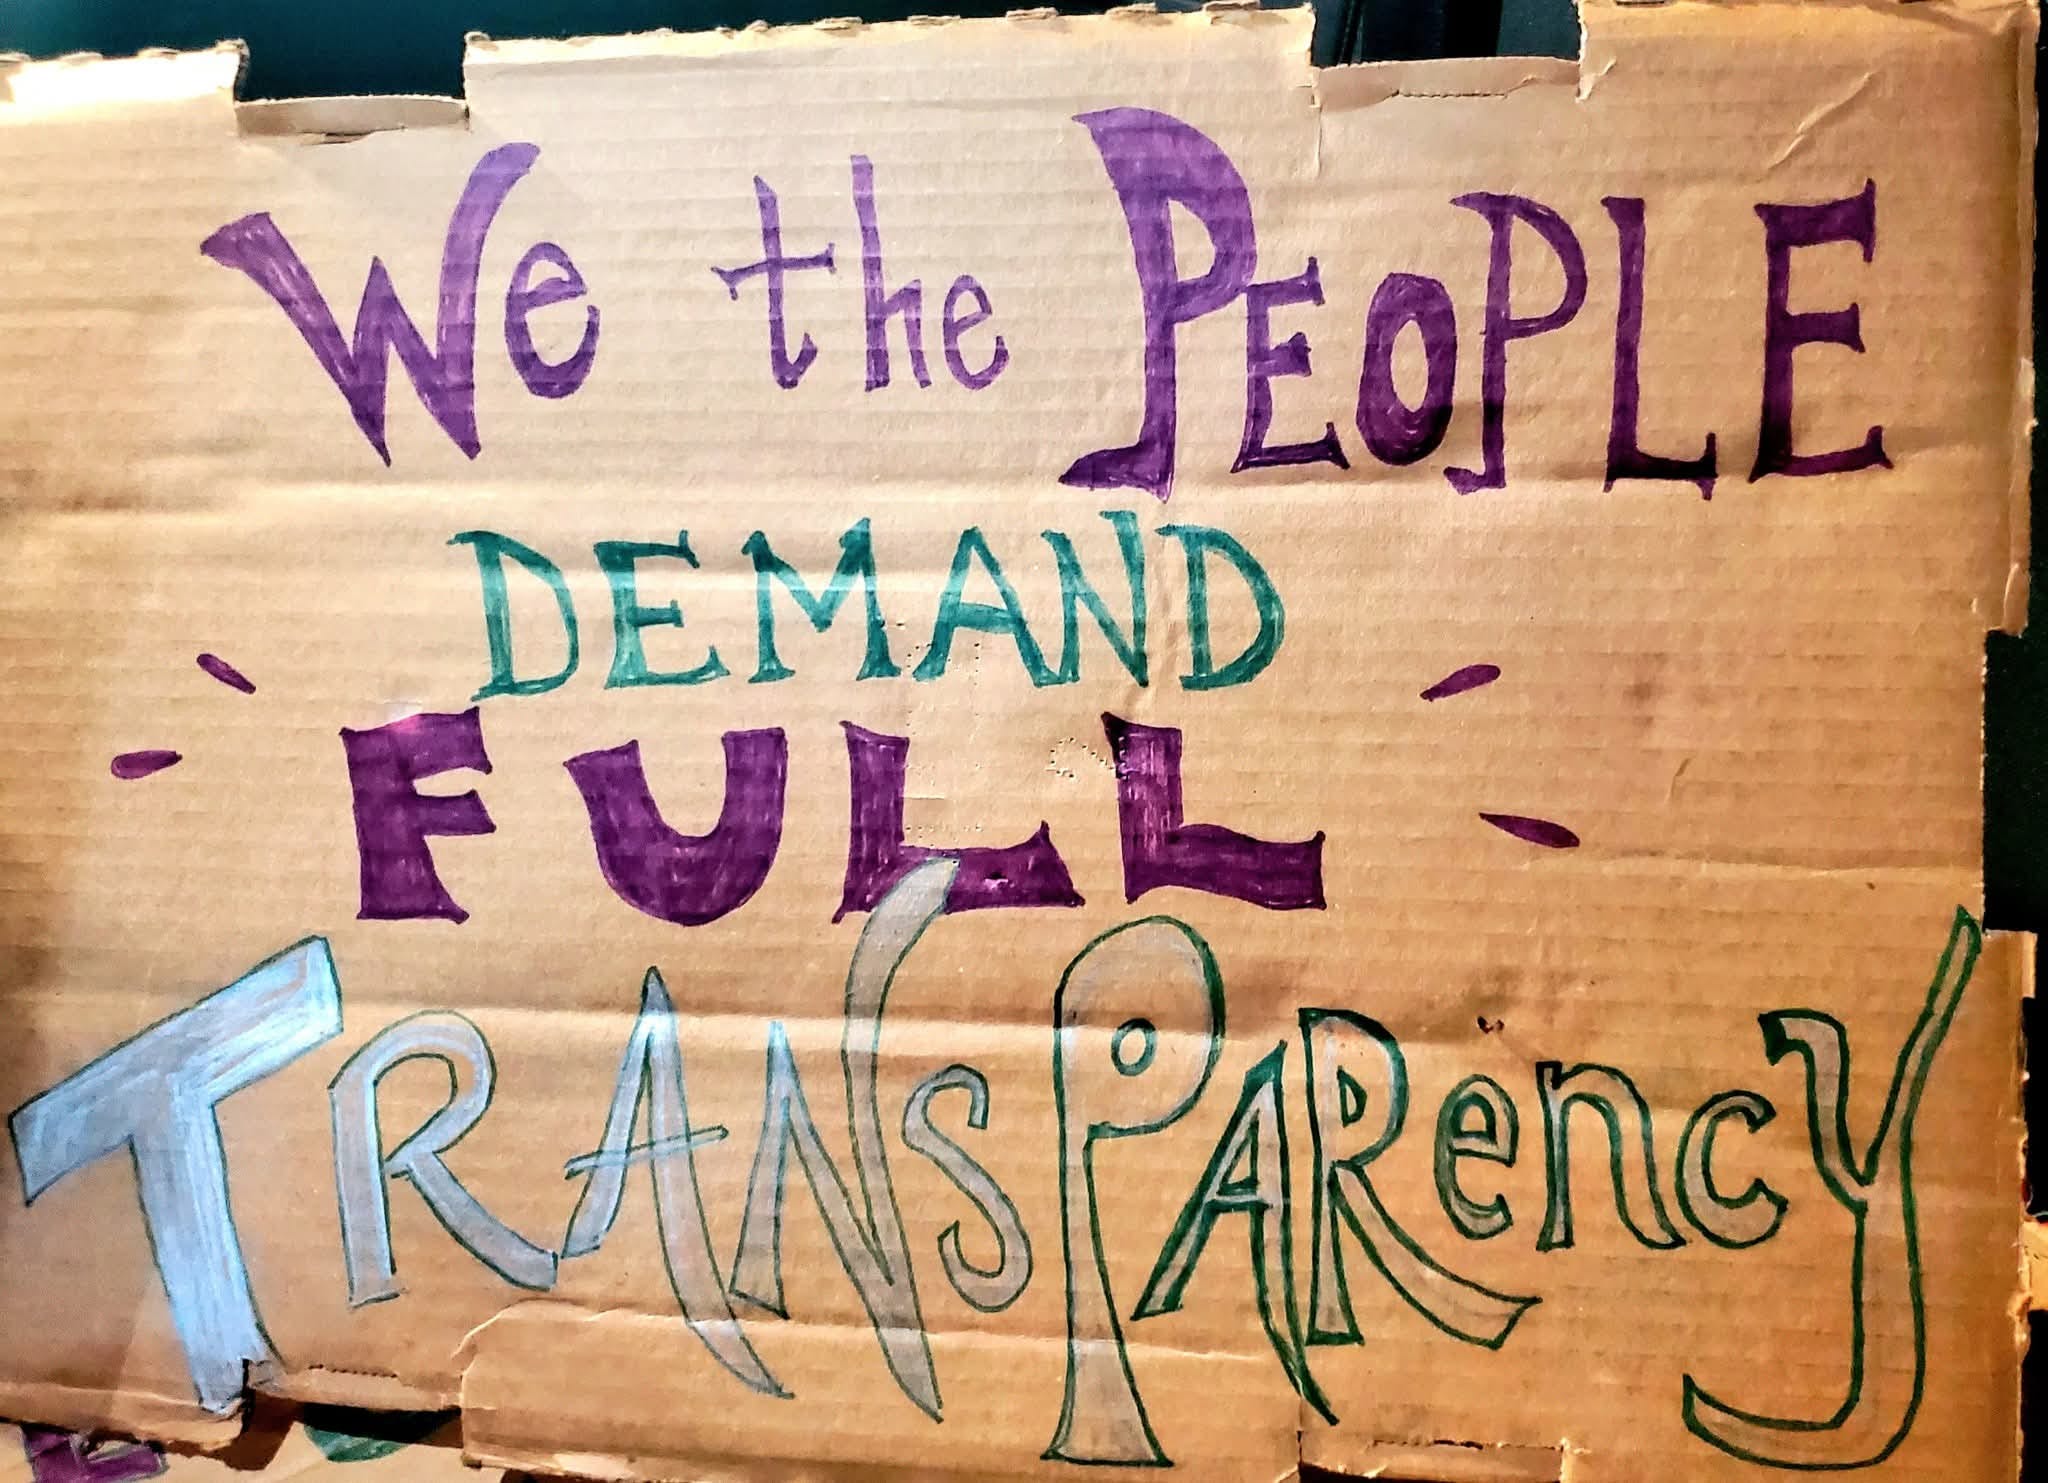 We the PEOPLE
DEMAND
FULL
TRANSPARency